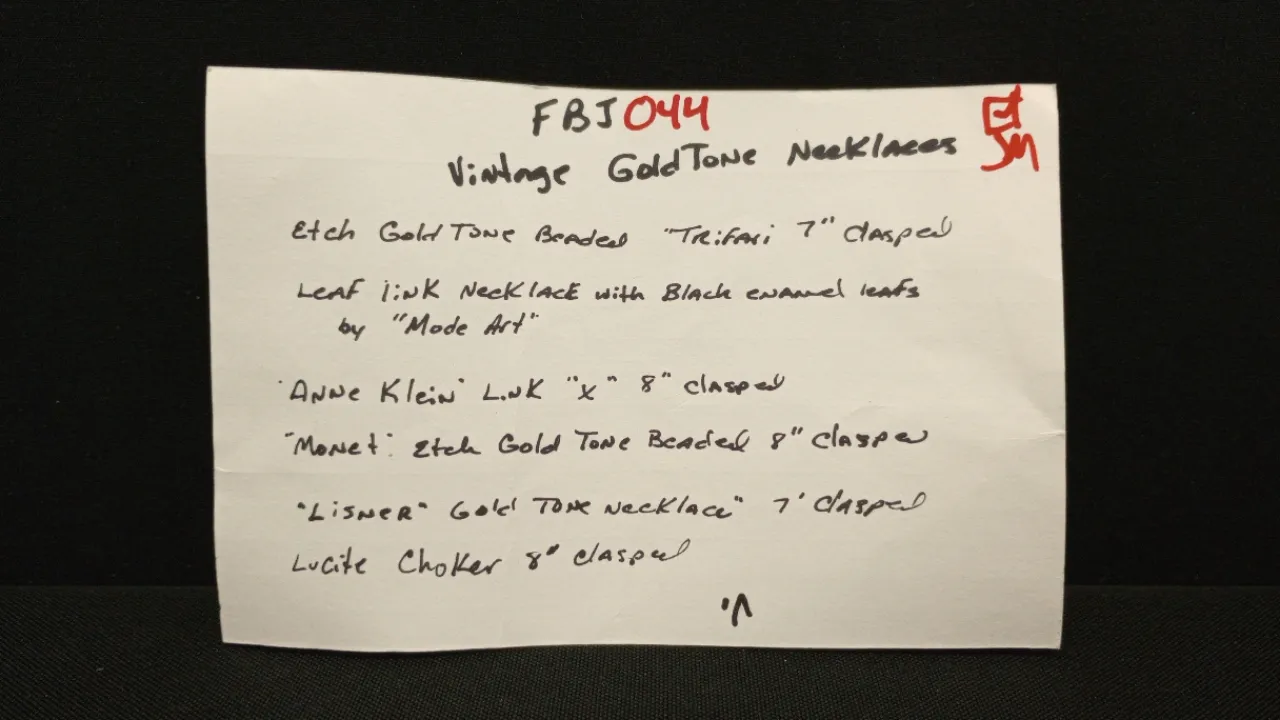 FBJ044
Vintage GoldTone Necklaces
Etch Gold Tone Beaded "Trifari 7" clasped
Leaf link Necklace with Black enamel leafs
by "Mode Art"
'Anne Klein' Link "x" 8" clasped
"Monet" Etch Gold Tone Beaded 8" clasped
"Lisner" Gold Tone Necklace" 7' clasped
Lucite Choker 8" clasped